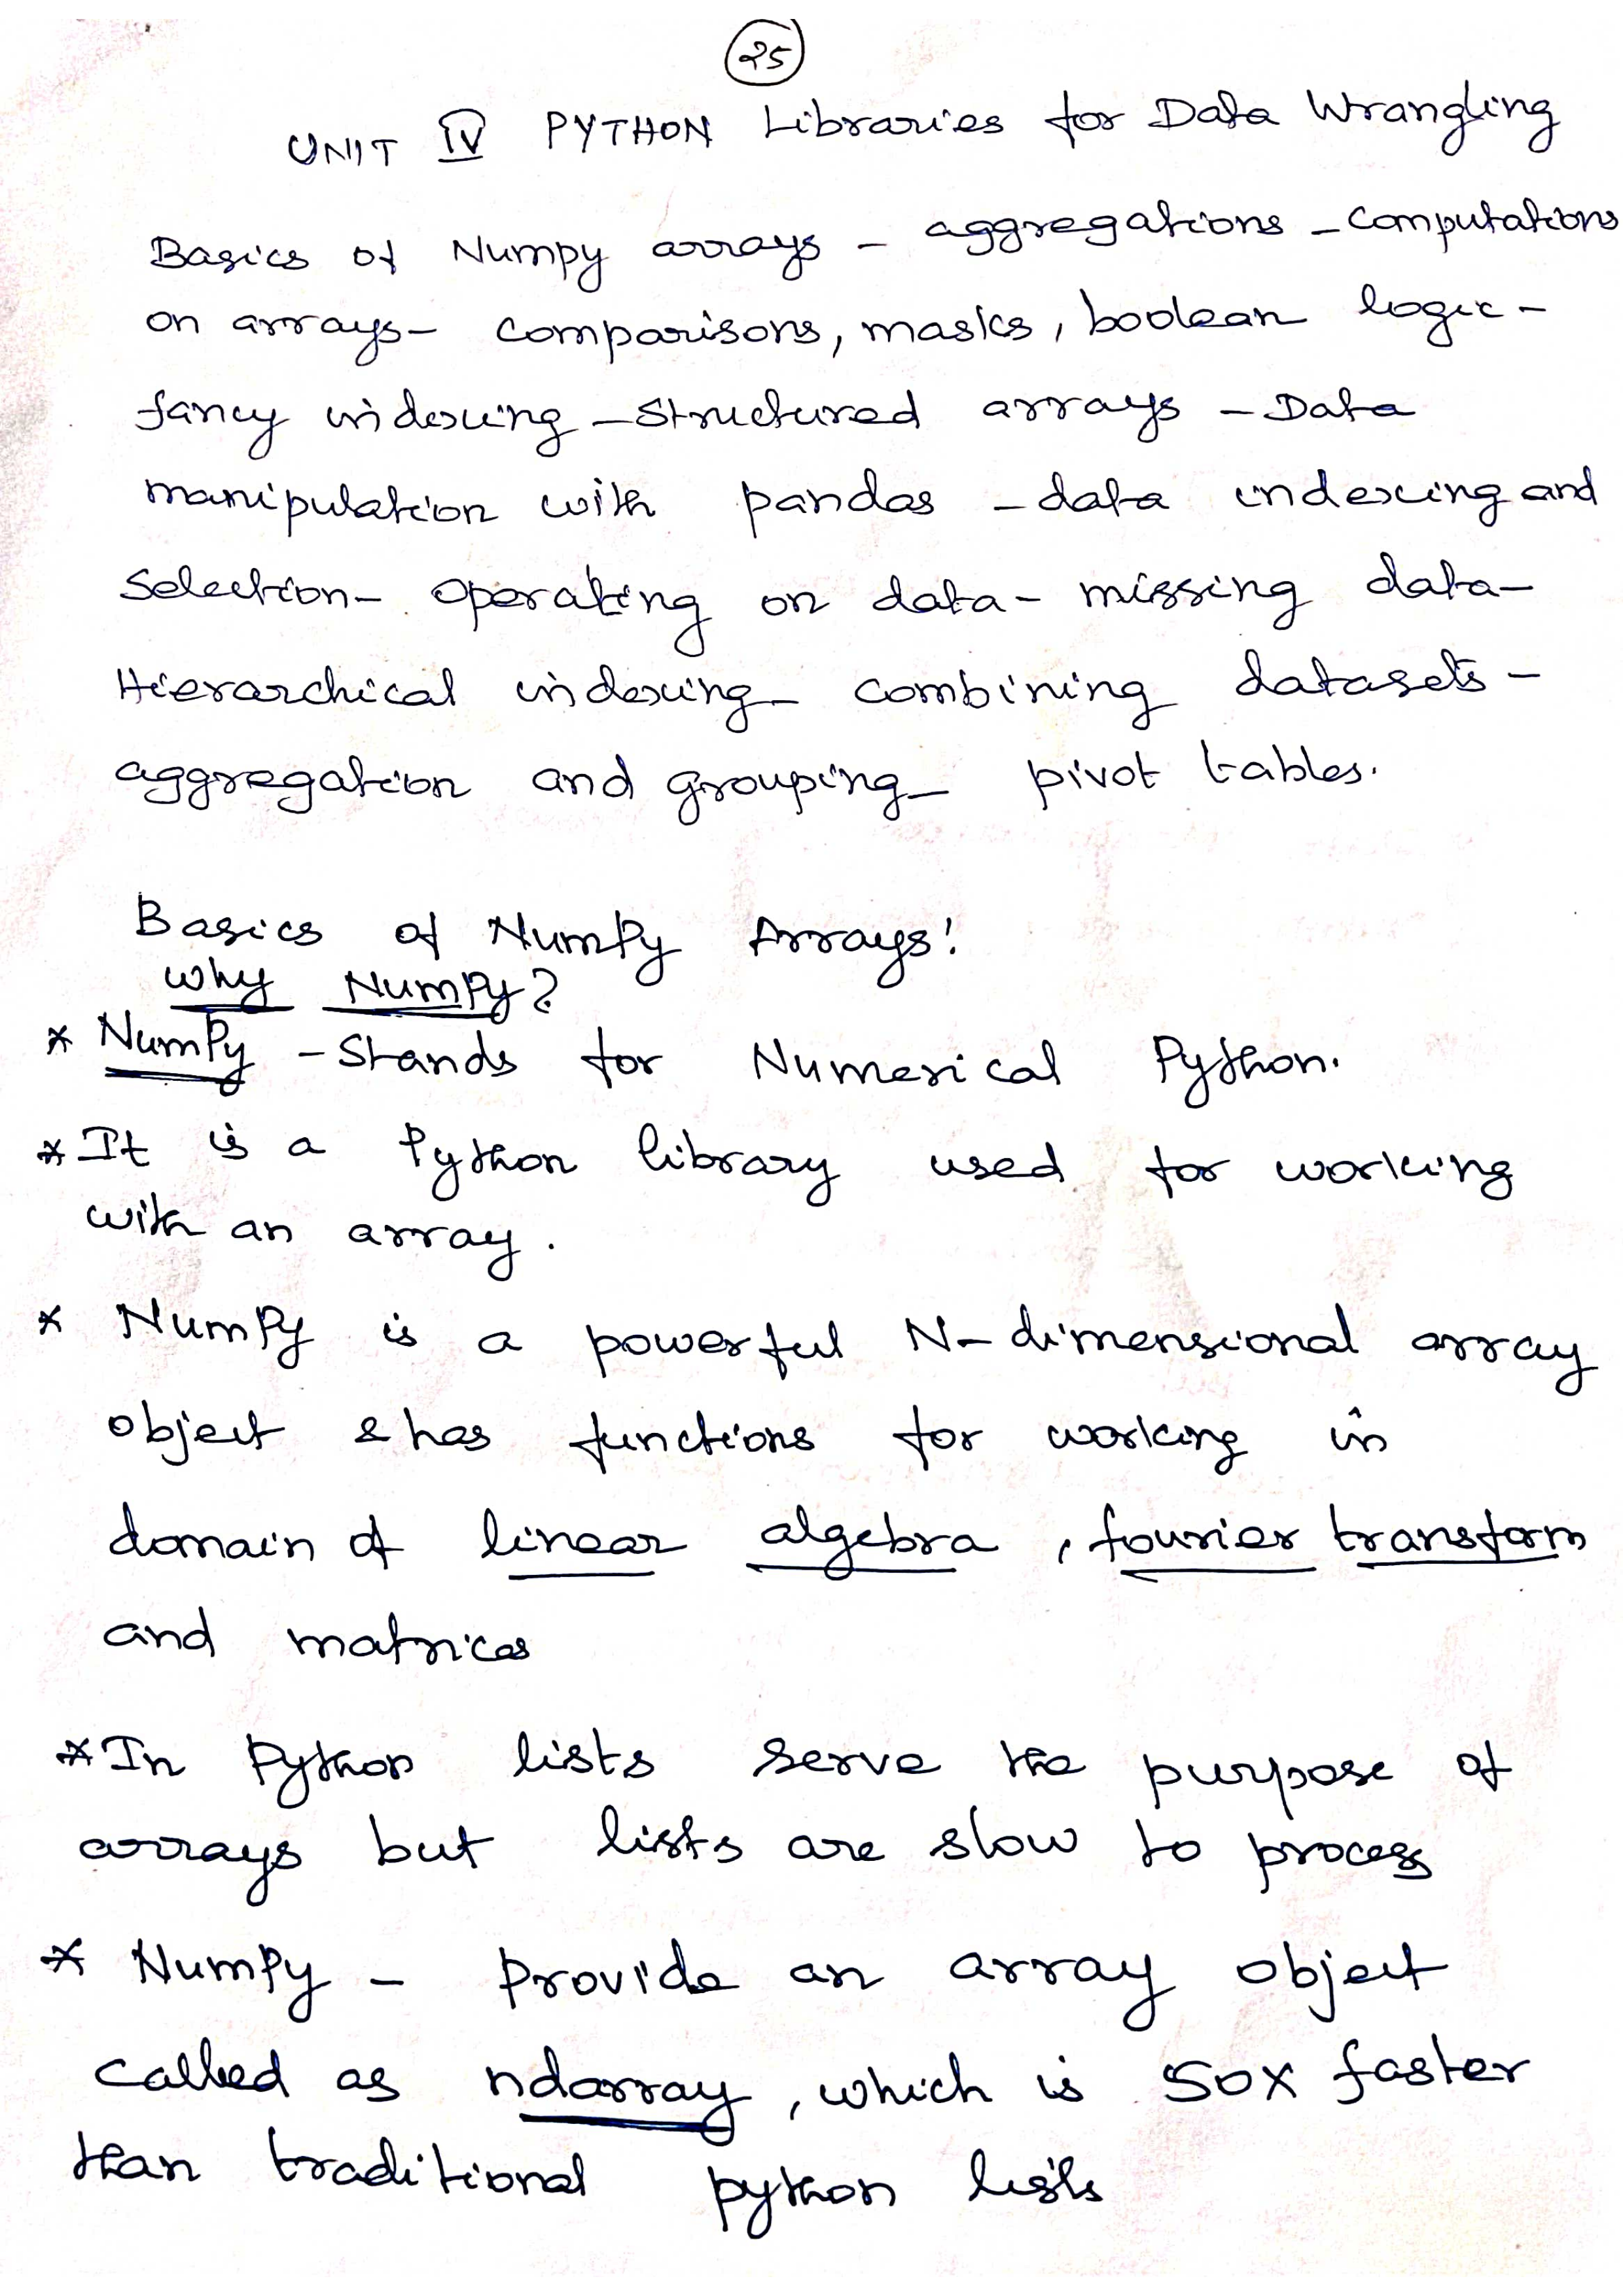 25
UNIT IV PYTHON Libraries for Data Wrangling
Basics of Numpy arrays - aggregations - Computations
on arrays - comparisons, masks, boolean logic -
fancy indexing - Structured arrays - Data
manipulation with pandas - data indexing and
Selection - Operating on data - missing data -
Hierarchical indexing - combining datasets -
aggregation and grouping - pivot tables.
Basics of NumPy Arrays:
Why NumPy?
* NumPy - Stands for Numerical Python.
* It is a Python library used for working
with an array.
* NumPy is a powerful N-dimensional array
object & has functions for working in
domain of linear algebra, fourier transform
and matrices
* In Python lists serve the purpose of
arrays but lists are slow to process
* NumPy - Provide an array object
called as ndarray, which is 50X faster
than traditional python lists